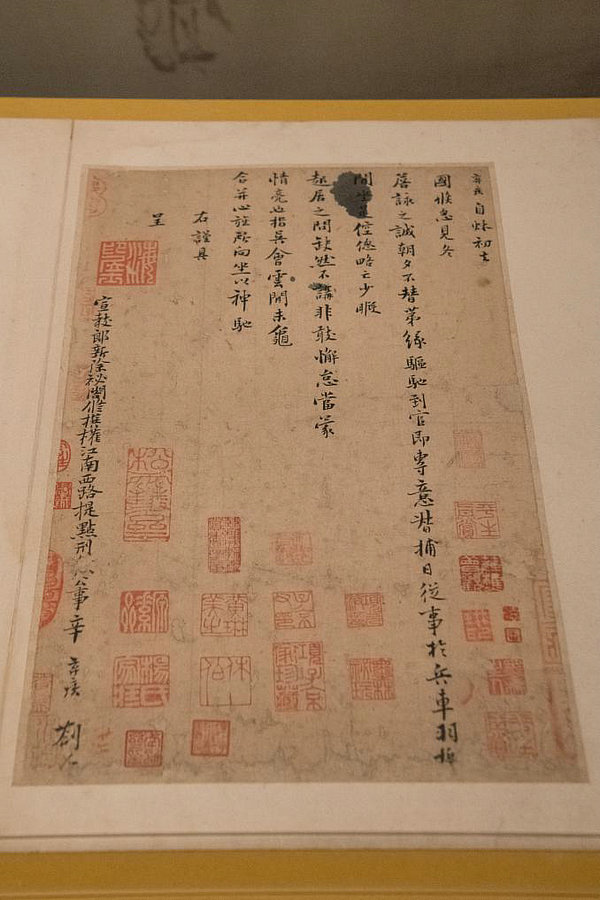 棄疾自秋初去
國倏忽見冬
詹詠之誠朝夕不替第緣驅馳到官即專意督捕日從事於兵車羽檄
間坐是倥傯略亡少暇
起居之問缺然不講非敢懈怠當蒙
情亮也指吳會雲間未龜
合并心旌所向坐以神馳
右謹具
呈
宣教郎新除秘閣修撰權江南西路提點刑獄公事辛棄疾劄子
項子京家珍藏